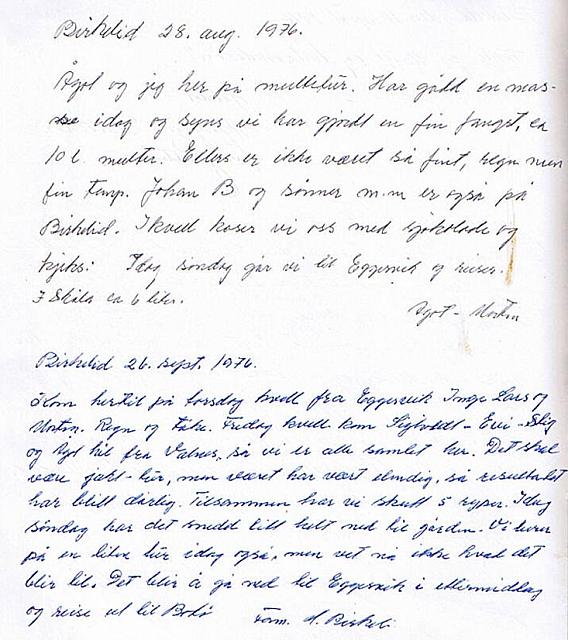 Birkelid 28. aug. 1976.
Ågot og jeg her på multetur. Har gådd en mas-
se idag og syns vi har gjordt en fin fangst, ca
10 l. multer. Ellers er ikke været så fint, regn men
fin temp. Johan B og sønner m.m er også på
Birkelid. I kveld koser vi oss med sjokolade og
kjeks. Idag søndag går vi til Eggesvik og reiser.
I Skåla ca 6 liter.
Ågot - Morten
Birkelid 26. sept. 1976.
Kom hertil på torsdag kveld fra Eggesvik Inge Lars og
Morten. Regn og tåke. Fredag kveld kom Sigvaldt - Evi - Stig
og Ågot hit fra Valnes, så vi er alle samlet her. Det skal
være jakt-tur, men været har vært elendig, så resultatet
har blitt dårlig. Tilsammen har vi skutt 5 ryper. Idag
søndag har det snedd litt helt ned til gården. Vi lurer
på en liten tur idag også, men vet nå ikke hvad det
blir til. Det blir å gå ned til Eggesvik i ettermiddag
og reise ut til Bodø